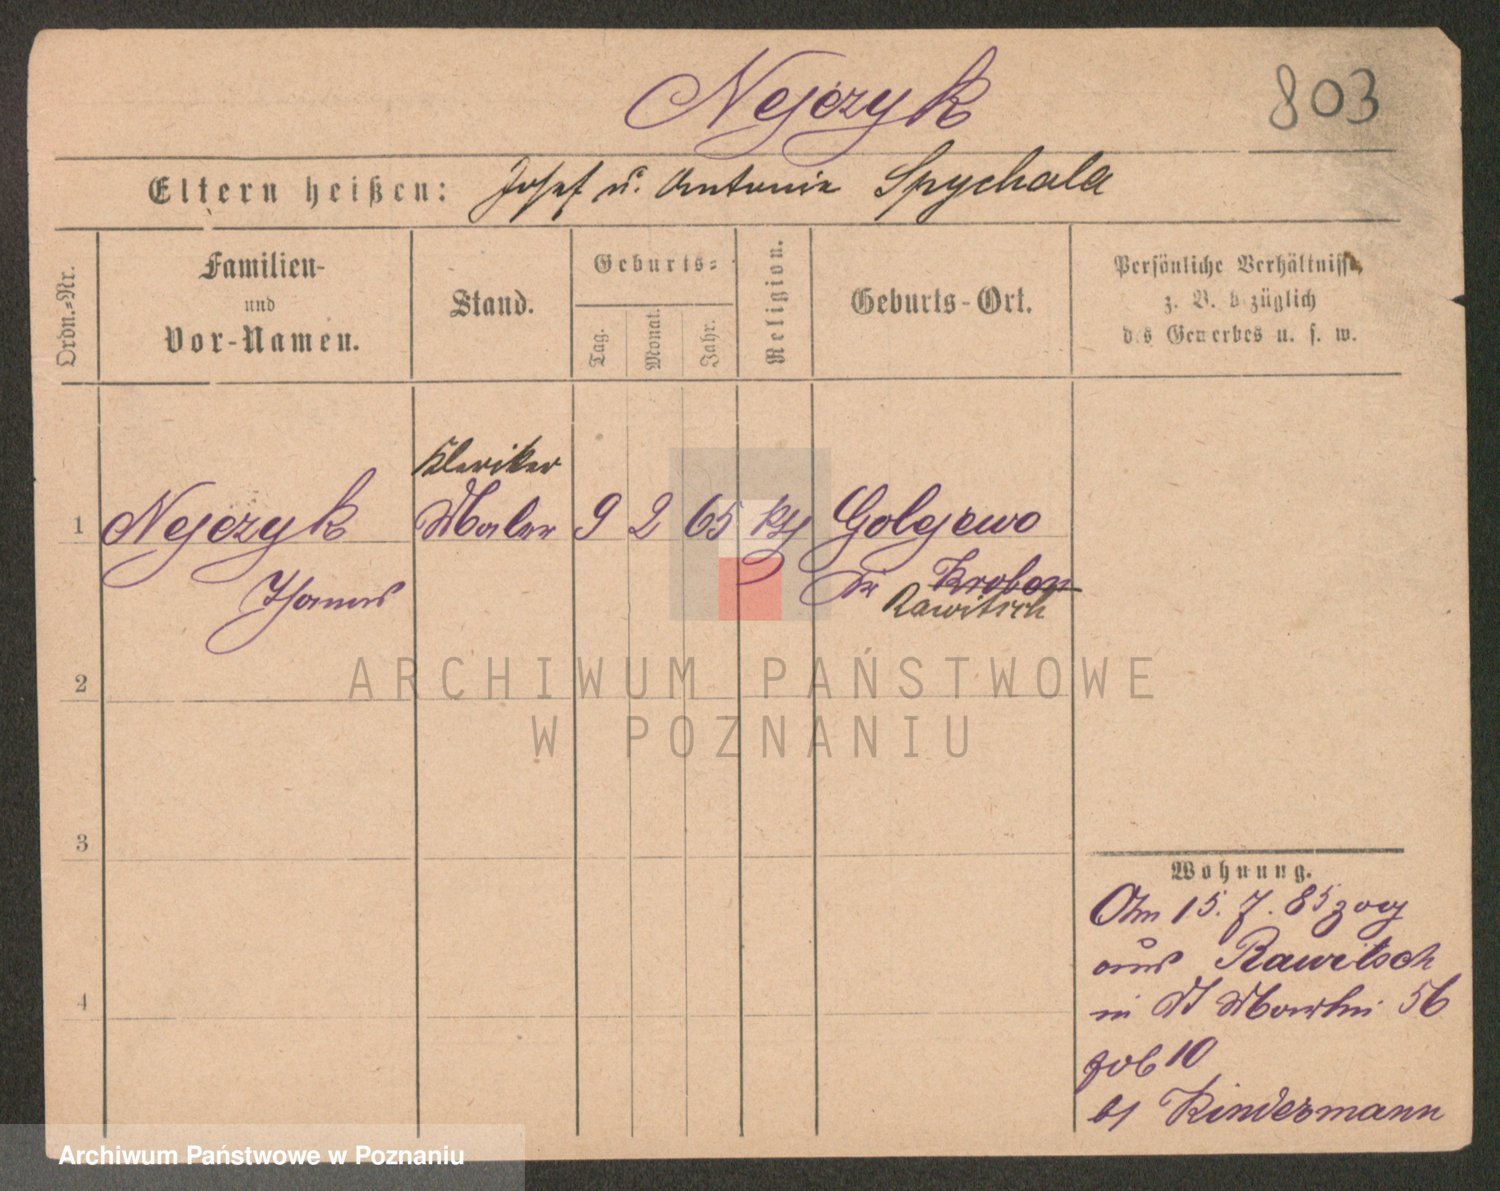 Nejczyk
803
Eltern heißen: Josef u. Antonie Spychala
Ordn.-Nr.
Familien- und Vor-Namen.
Stand.
Geburts-
Tag.
Monat.
Jahr.
Religion.
Geburts-Ort.
Persönliche Verhältnisse
z. B. bezüglich
des Gewerbes u. s. w.
Kleriker
1 Nejczyk Maler 9 2 65 kth Golejewo
Thomas Kr Kroben
Rawitsch
2
ARCHIWUM PAŃSTWOWE
W POZNANIU
3
Wohnung.
Am 15. 7. 85 zog
aus Rawitsch
4
in St Martin 56
geb 10
bj Kindermann
Archiwum Państwowe w Poznaniu